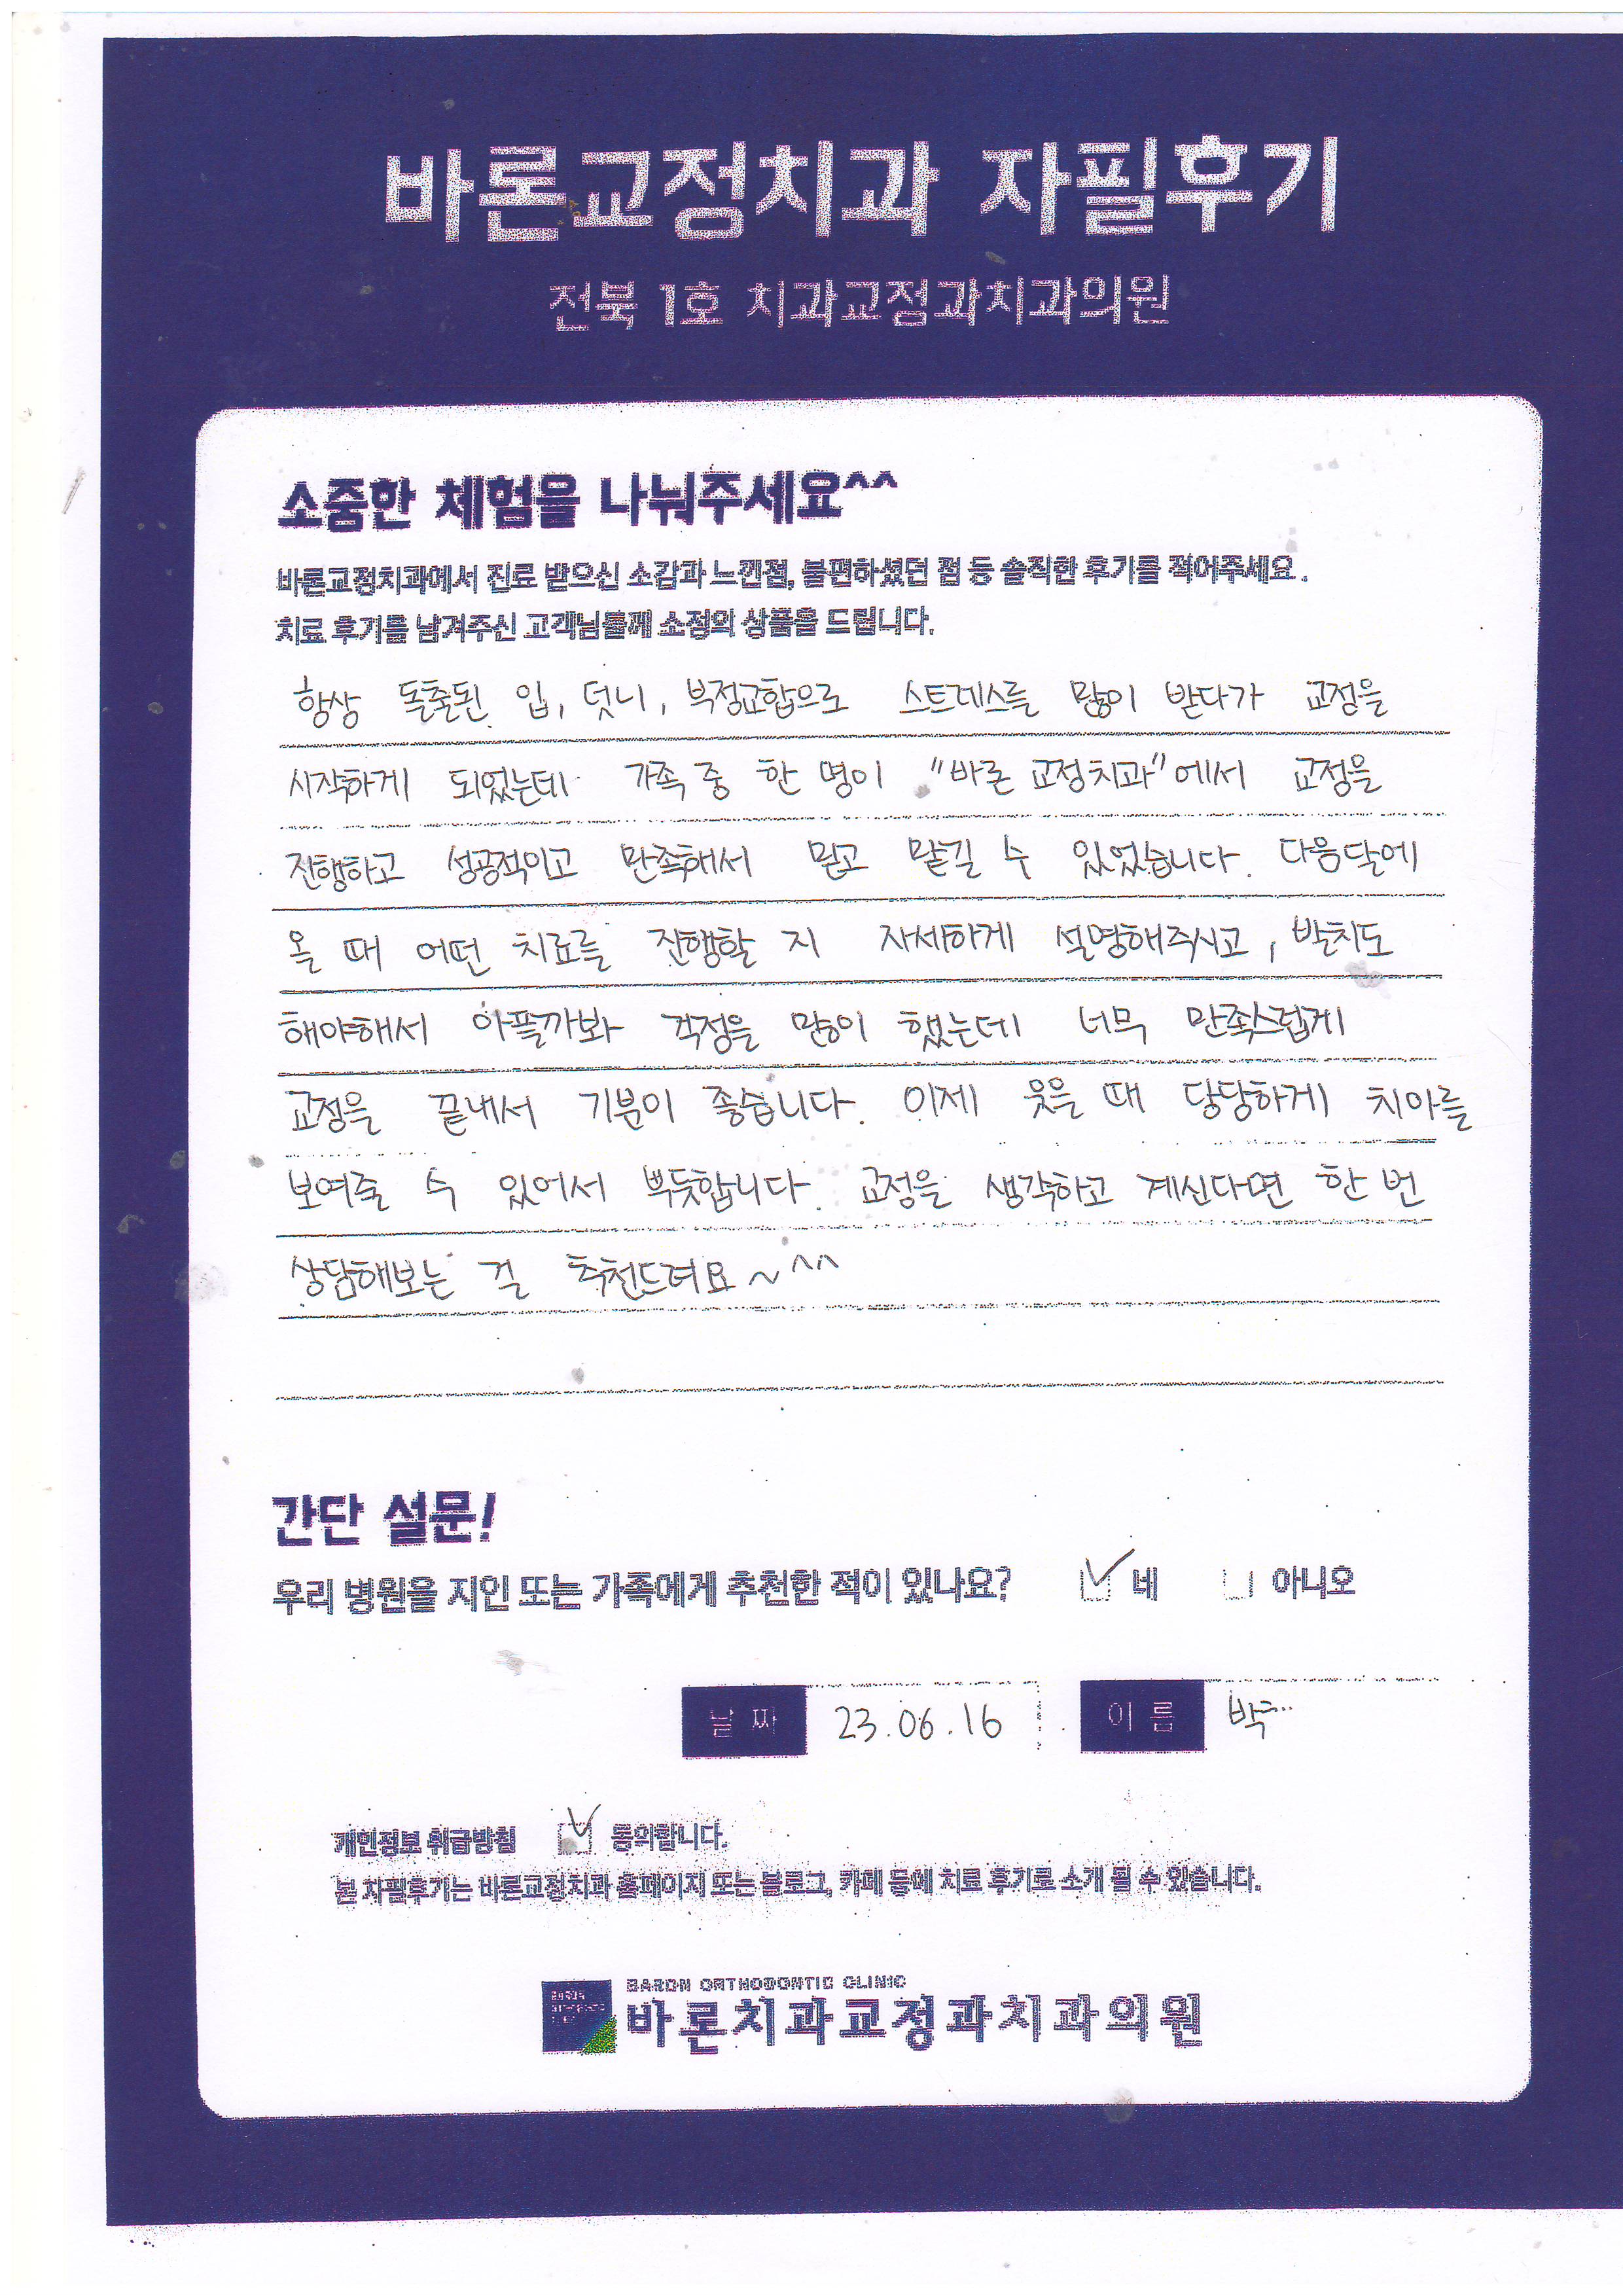 바론교정치과 자필후기
전북 1호 치과교정과치과의원
소중한 체험을 나눠주세요^^
바론교정치과에서 진료 받으신 소감과 느낀점, 불편하셨던 점 등 솔직한 후기를 적어주세요.
치료 후기를 남겨주신 고객님들께 소정의 상품을 드립니다.
항상 돌출된 입, 덧니, 부정교합으로 스트레스를 많이 받다가 교정을
시작하게 되었는데 가족 중 한 명이 "바론 교정치과"에서 교정을
진행하고 성공적이고 만족해서 믿고 맡길 수 있었습니다. 다음달에
올 때 어떤 치료를 진행할 지 자세하게 설명해주시고, 발치도
해야해서 아플까봐 걱정을 많이 했는데 너무 만족스럽게
교정을 끝내서 기분이 좋습니다. 이제 웃을 때 당당하게 치아를
보여줄 수 있어서 뿌듯합니다. 교정을 생각하고 계신다면 한 번
상담해보는 걸 추천드려요~^^
간단 설문!
우리 병원을 지인 또는 가족에게 추천한 적이 있나요? 네 아니오
날짜 23.06.16 이름 박
개인정보 취급방침 동의합니다.
본 자필후기는 바론교정치과 홈페이지 또는 블로그, 카페 등에 치료 후기로 소개 될 수 있습니다.
BARON ORTHODONTIC CLINIC
바론치과교정과치과의원